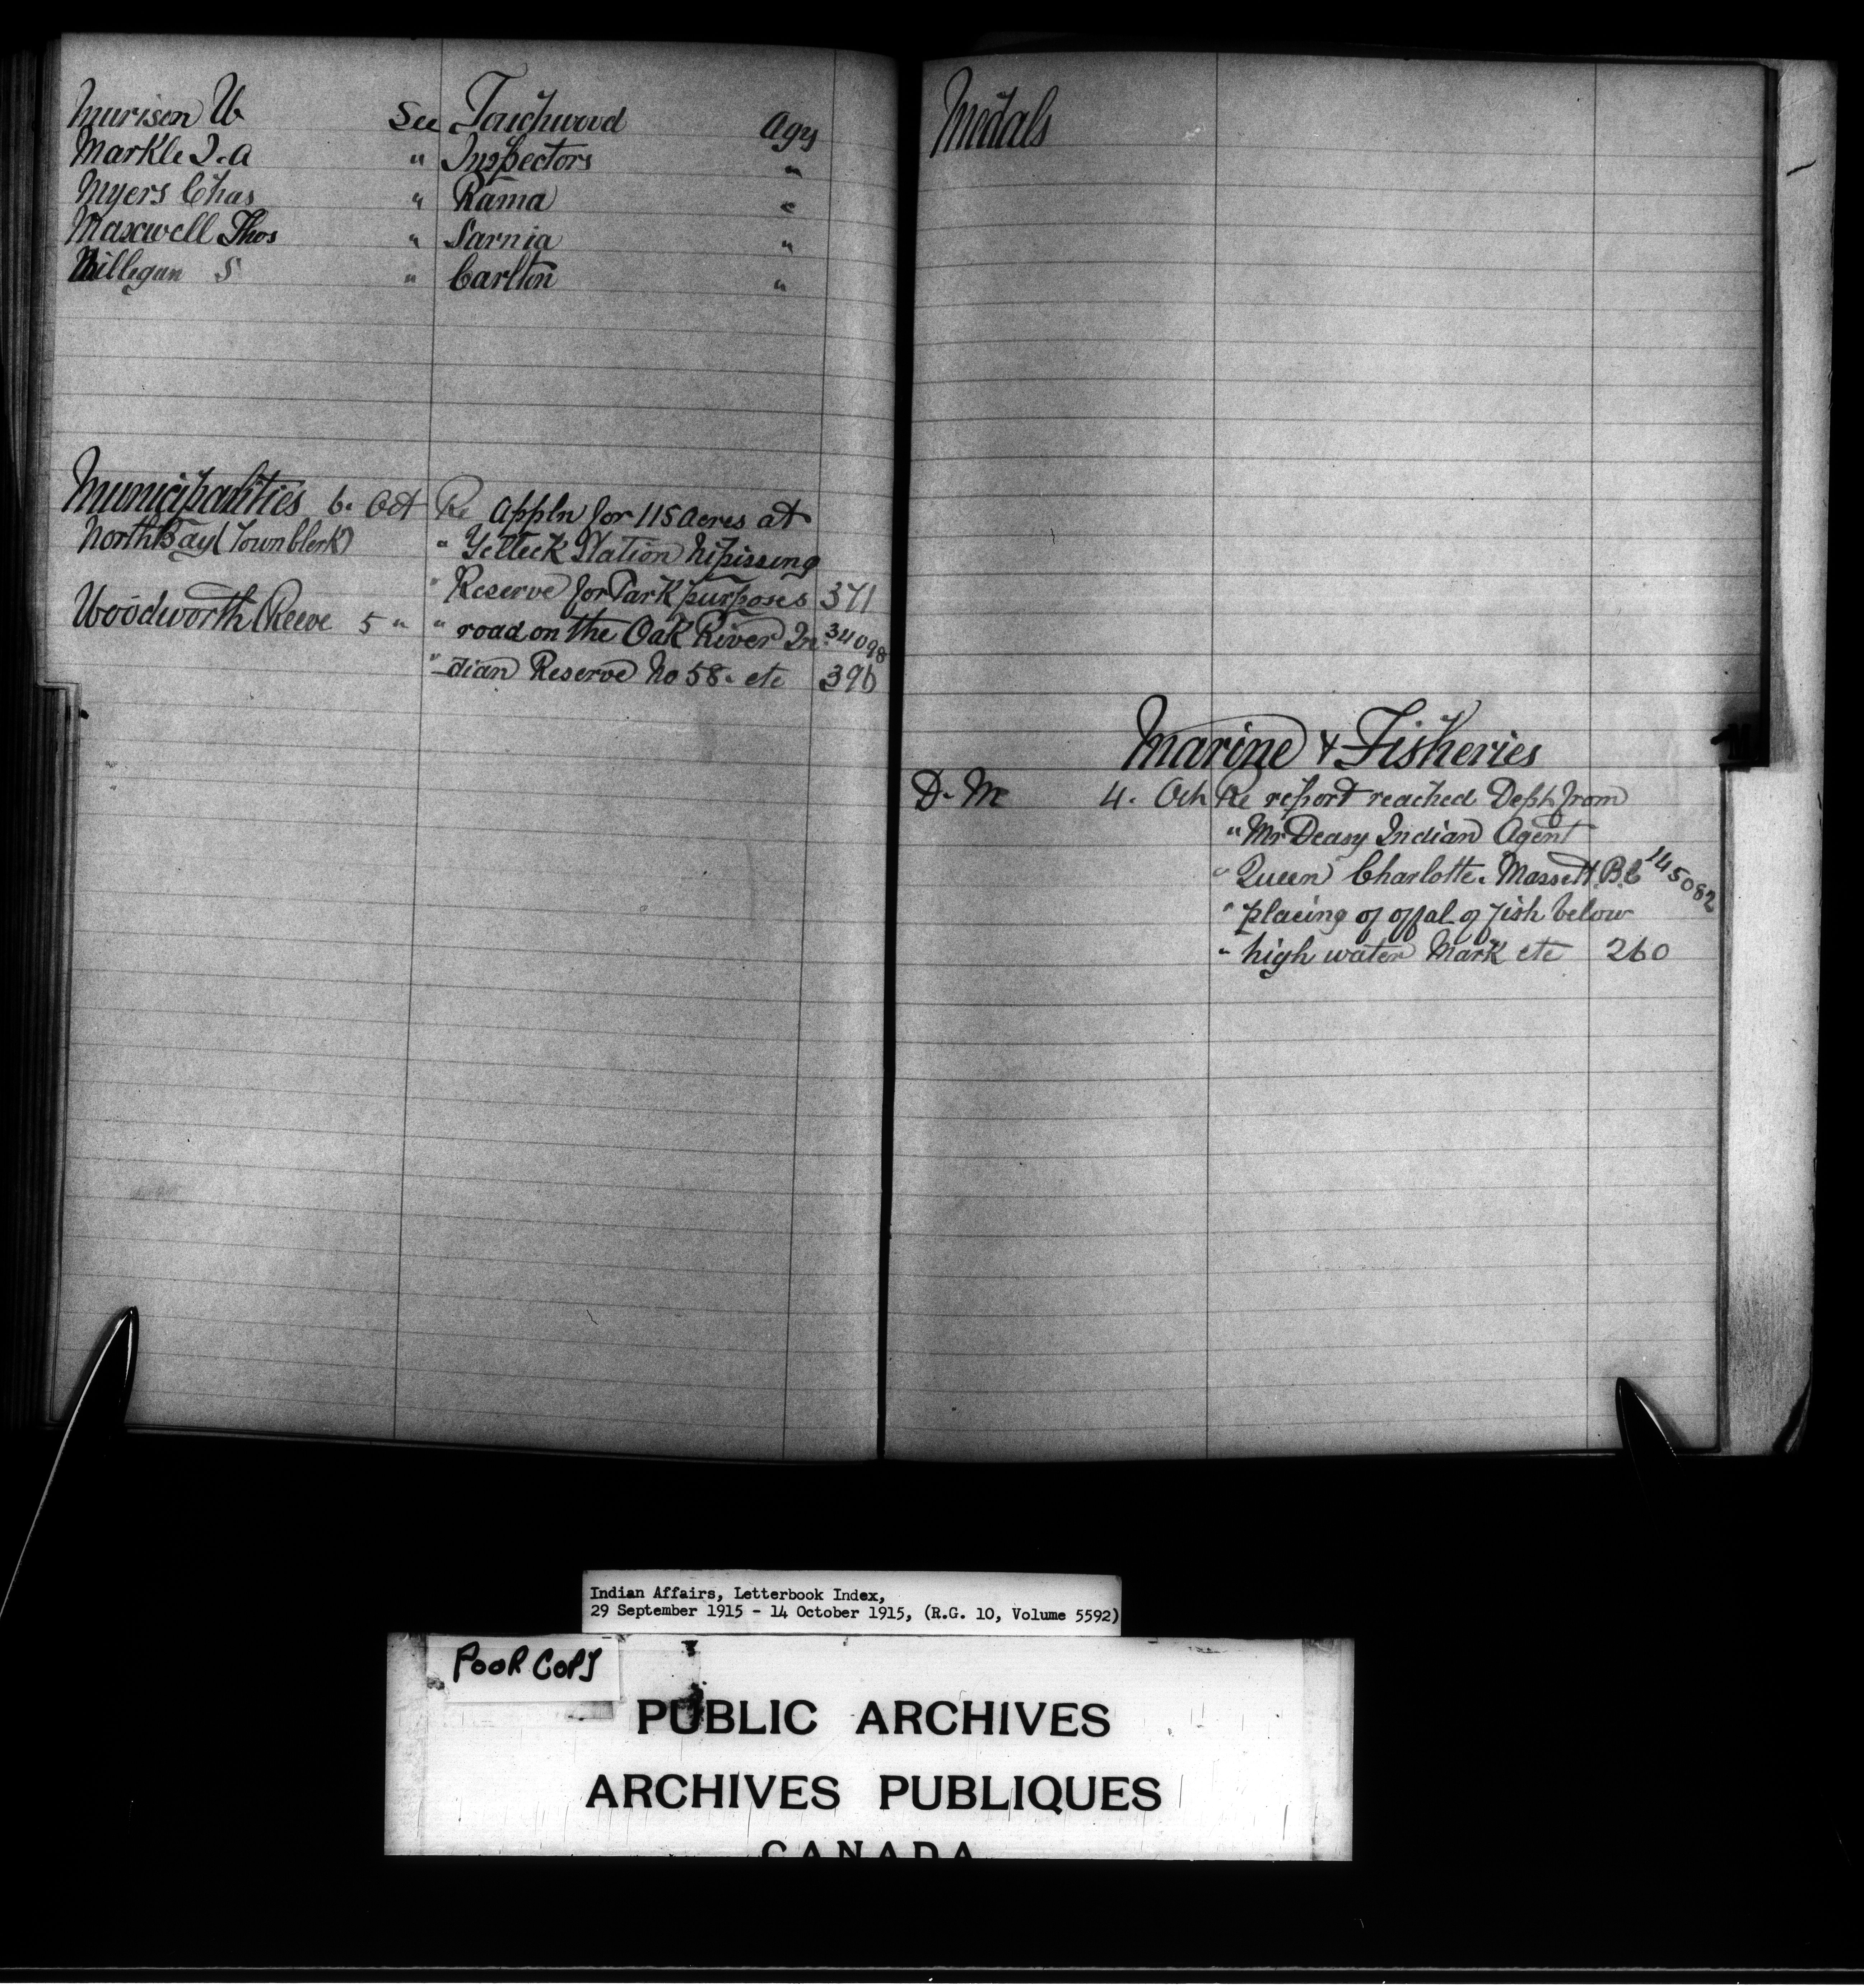 Murison W See Touchwood Agy
Markle J. A " Inspectors "
Myers Chas " Rama "
Maxwell Thos " Sarnia "
Milligan S " Carlton "
Municipalities 6. Oct Re Appln for 115 Acres at
North Bay (Town Clerk) " Station Nipissing
" Reserve for Park purposes 371
Woodworth (Reeve 5 " " road on the Oak River In 34098
" -dian Reserve No 58. etc 396
Medals
Marine & Fisheries
D. M 4. Oct Re report reached Dept from
" Mr Deasy Indian Agent
" Queen Charlotte. Massett. B.C 145082
" placing of offal of fish below
" high water Mark etc 260
Indian Affairs, Letterbook Index,
29 September 1915 - 14 October 1915, (R.G. 10, Volume 5592)
POOR COPY
PUBLIC ARCHIVES
ARCHIVES PUBLIQUES
CANADA